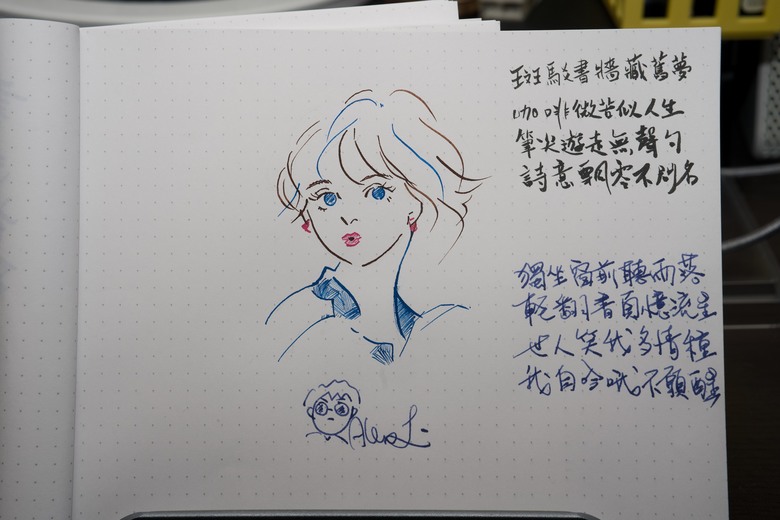 斑駁書牆藏舊夢
咖啡微苦似人生
筆尖遊走無聲勾
詩意飄零不刷名
獨坐窗前聽雨落
翻書頁憶流星
世人笑我多情種
我自吟哦不願醒